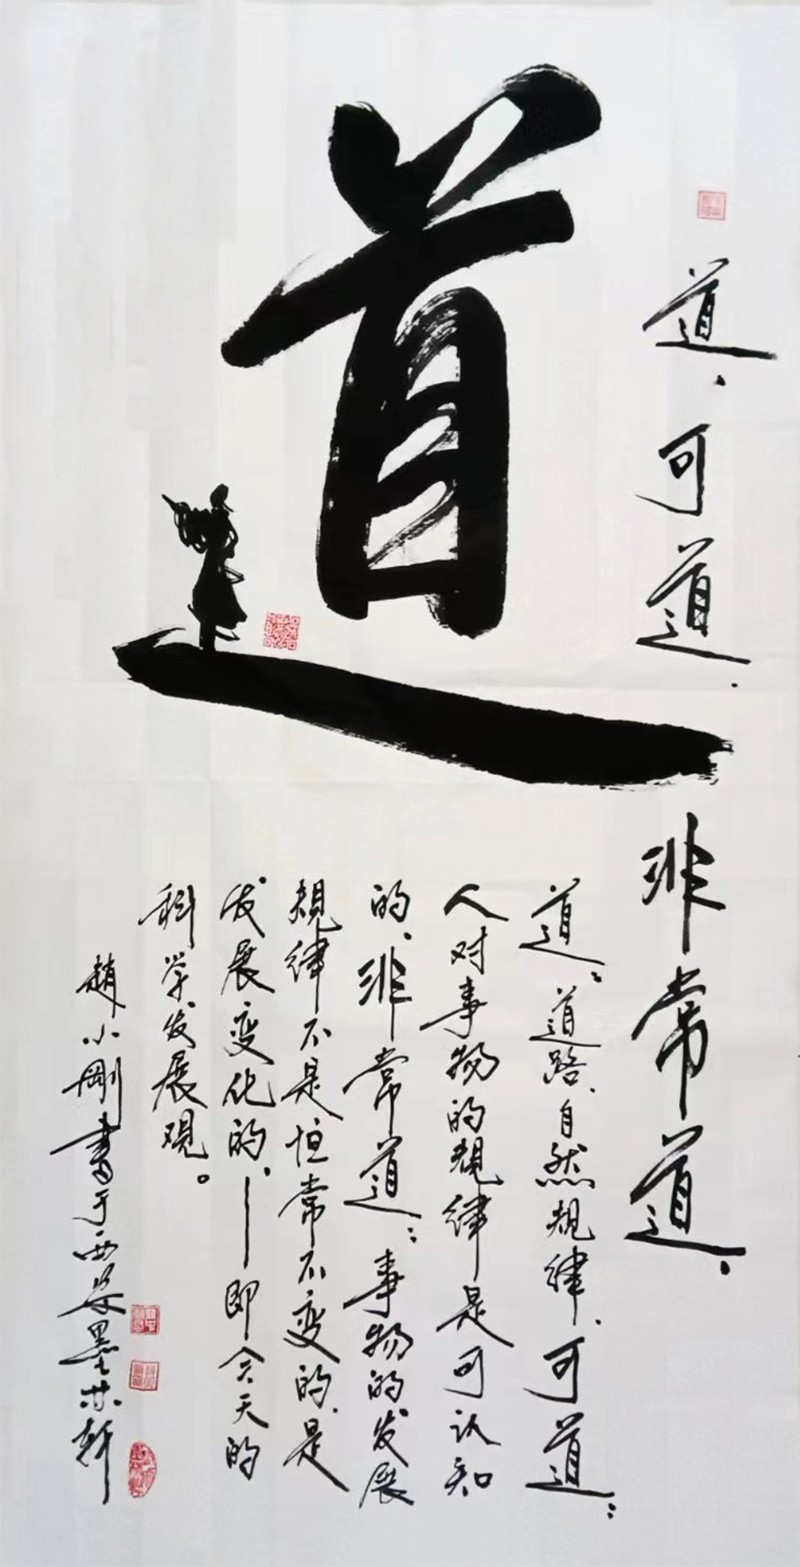 道
道，可道，非常道。
道：道路、自然规律，可道：
人对事物的规律是可认知
的，非常道：事物的发展
规律不是恒常不变的，是
发展变化的，一即今天的
科学发展观。
趙小剛書于西安墨林轩